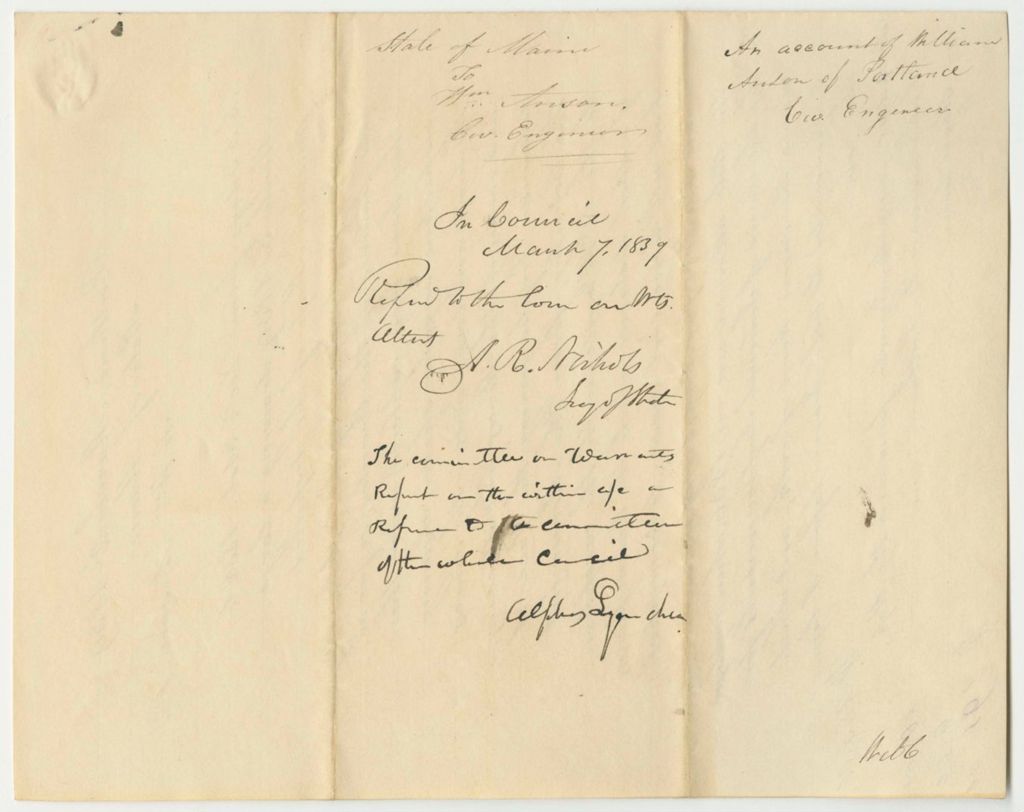 State of Maine
To
Wm. Anson.
Civ. Engineer
In Council
March 7, 1839
Referd to the Com on Wts.
Attest
A. R. Nichols
Secy of State
The committee on Warrants
Report on the within a/c a
Reference to the committee
of the whole Council
Alpheus Lyon chm
An account of William
Anson of Portland
Civ. Engineer